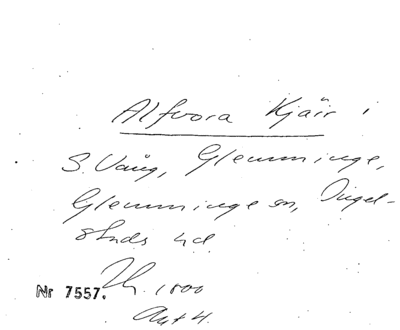 Alfvora Kjäir i
S. Vång, Glemminge,
Glemminge sn, Ingel-
stads hd
Nr 7557. Th. 1000
Avt 4.